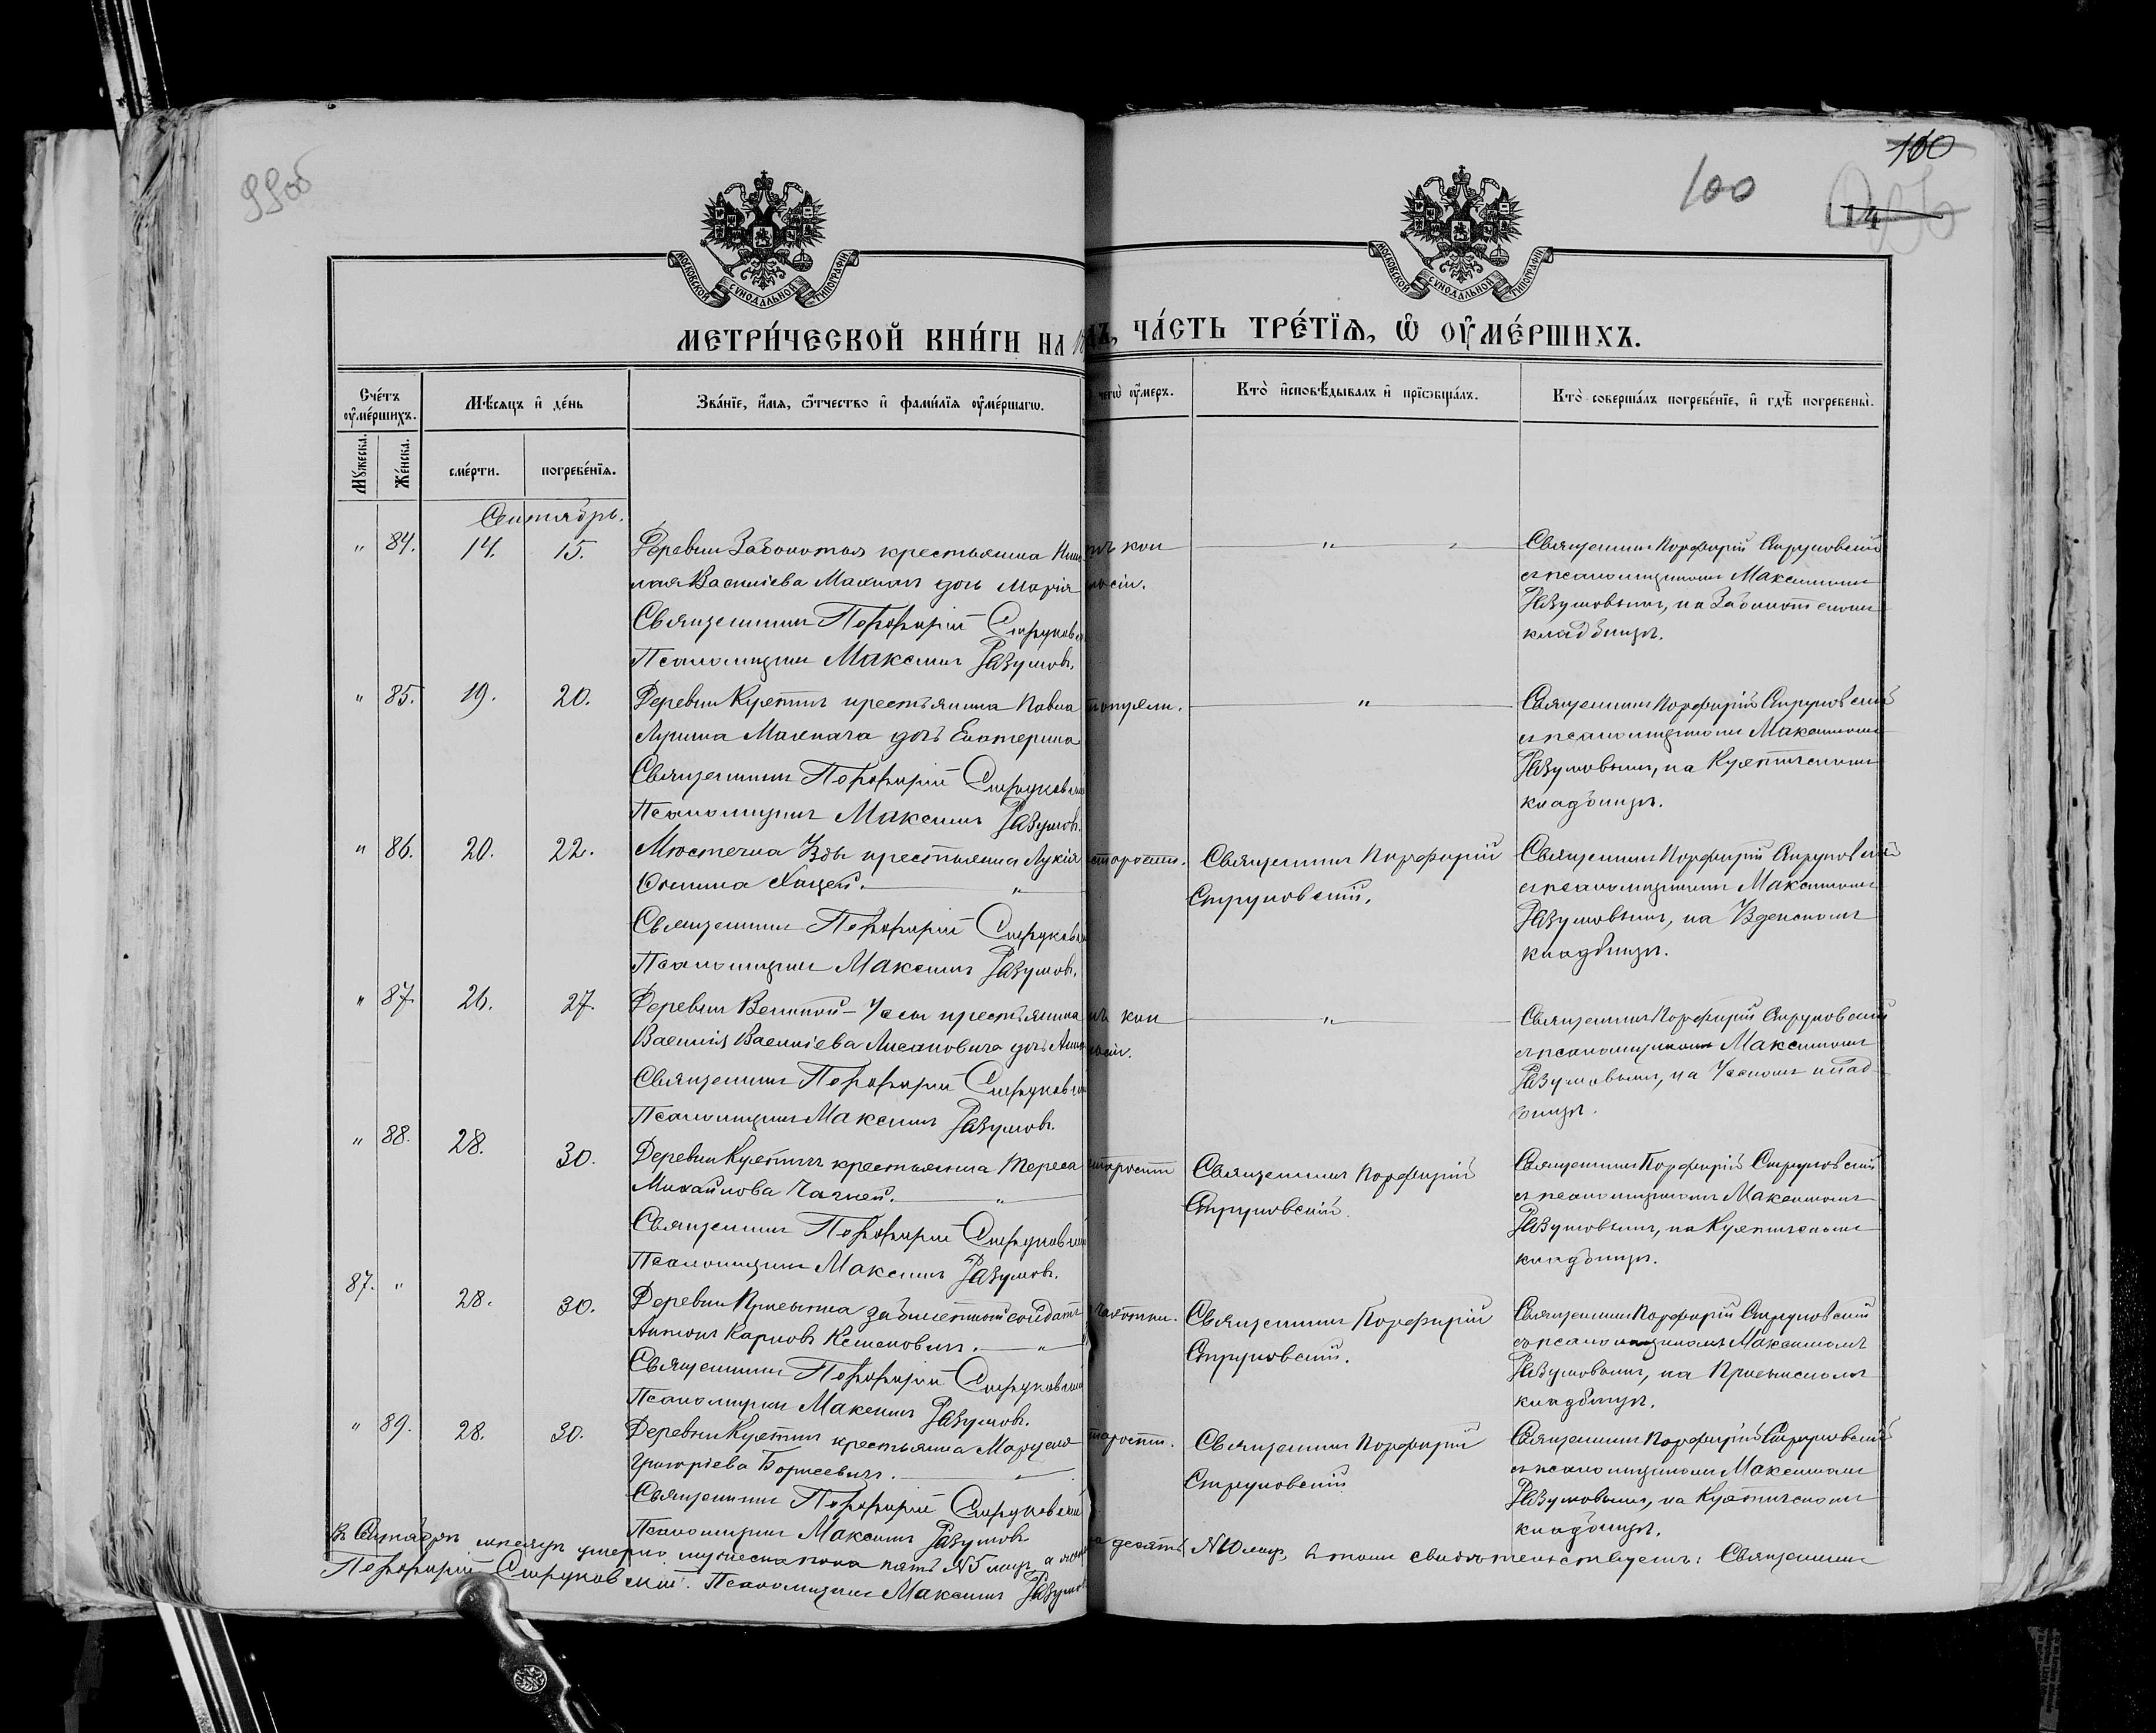 99об
100
100
114
МОСКОВСКОЙ СѴНОДАЛЬНОЙ ТИПОГРАФІИ
МОСКОВСКОЙ СѴНОДАЛЬНОЙ ТИПОГРАФІИ
МЕТРИ́ЧЕСКОЙ КНИ́ГИ НА 18
ДЪ, ЧА́СТЬ ТРЕ́ТЇѦ, Ѽ ОУ҆МЕ́РШИХЪ.
Сче́тъ оу҆ме́ршихъ.
Мѣ́сѧцъ и҆ де́нь
Зва́нїе, и҆́мѧ, ѻ҆́тчество и҆ фами́лїѧ оу҆ме́ршагѡ.
чегѡ̀ оу҆́меръ.
Кто̀ и҆сповѣ́дывалъ и҆ прїѡбща́лъ.
Кто̀ соверша́лъ погребе́нїе, и҆ гдѣ̀ погребены̀.
Мꙋ́жеска.
Же́нска.
сме́рти.
погребе́нїѧ.
Сентябрь.
" 84. 14. 15. Деревни Заболотья крестьянина
лая Васильева Махнач дочь Марія
Священникъ Порфирій Струковс
Псаломщикъ Максимъ Разумовъ.
" "
Священникъ Порфирій Струковскій
съ псаломщикомъ Максимомъ
Разумовымъ, на Заболотскомъ
кладбищѣ.
" 85. 19. 20. Деревни Куятичъ крестьянина Павла
Лукина Махнача дочь Екатерина
Священникъ Порфирій Струковскій
Псаломщикъ Максимъ Разумовъ.
"
Священникъ Порфирій Струковскій
съ псаломщикомъ Максимомъ
Разумовымъ, на Куятичскомъ
кладбищѣ.
" 86. 20. 22. Мѣстечка Узды крестьянка Лукія
Священникъ Порфирій Струковск
Псаломщикъ Максимъ Разумовъ.
старости.
Священникъ Порфирій
Струковскій.
Священникъ Порфирій Струковскій
съ псаломщикомъ Максимомъ
Разумовымъ, на Узденскомъ
кладбищѣ.
" 87. 26. 27. Деревни Великой-Усы крестьянина
Василія Васильева дочь Анна
Священникъ Порфирій Струковск
Псаломщикъ Максимъ Разумовъ.
"
Священникъ Порфирій Струковскій
съ псаломщикомъ Максимомъ
Разумовымъ, на Усскомъ клад-
бищѣ.
" 88. 28. 30. Деревни Куятичъ крестьянка Тереса
Михайлова
Священникъ Порфирій Струковскій
Псаломщикъ Максимъ Разумовъ.
старости
Священникъ Порфирій
Струковскій.
Священникъ Порфирій Струковскій
съ псаломщикомъ Максимомъ
Разумовымъ, на Куятичскомъ
кладбищѣ.
87. " 28. 30. Деревни забилетный солдатъ
Антонъ Карповъ
Священникъ Порфирій Струковскій
Псаломщикъ Максимъ Разумовъ.
чахотки.
Священникъ Порфирій
Струковскій.
Священникъ Порфирій Струковскій
съ псаломщикомъ Максимомъ
Разумовымъ, на
кладбищѣ.
" 89. 28. 30. Деревни Куятичъ крестьянка
Григоріева Борисевичъ.
Священникъ Порфирій Струковскій
Псаломщикъ Максимъ Разумовъ
старости.
Священникъ Порфирій
Струковскій
Священникъ Порфирій Струковскій
съ псаломщикомъ Максимомъ
Разумовымъ, на Куятичскомъ
кладбищѣ.
Въ Сентябрѣ мѣсяцѣ умерло мужеска пола пять №5 лицъ, а десять №10 лицъ, въ томъ свидѣтельствуемъ: Священникъ
Порфирій Струковскій. Псаломщикъ Максимъ Разумов